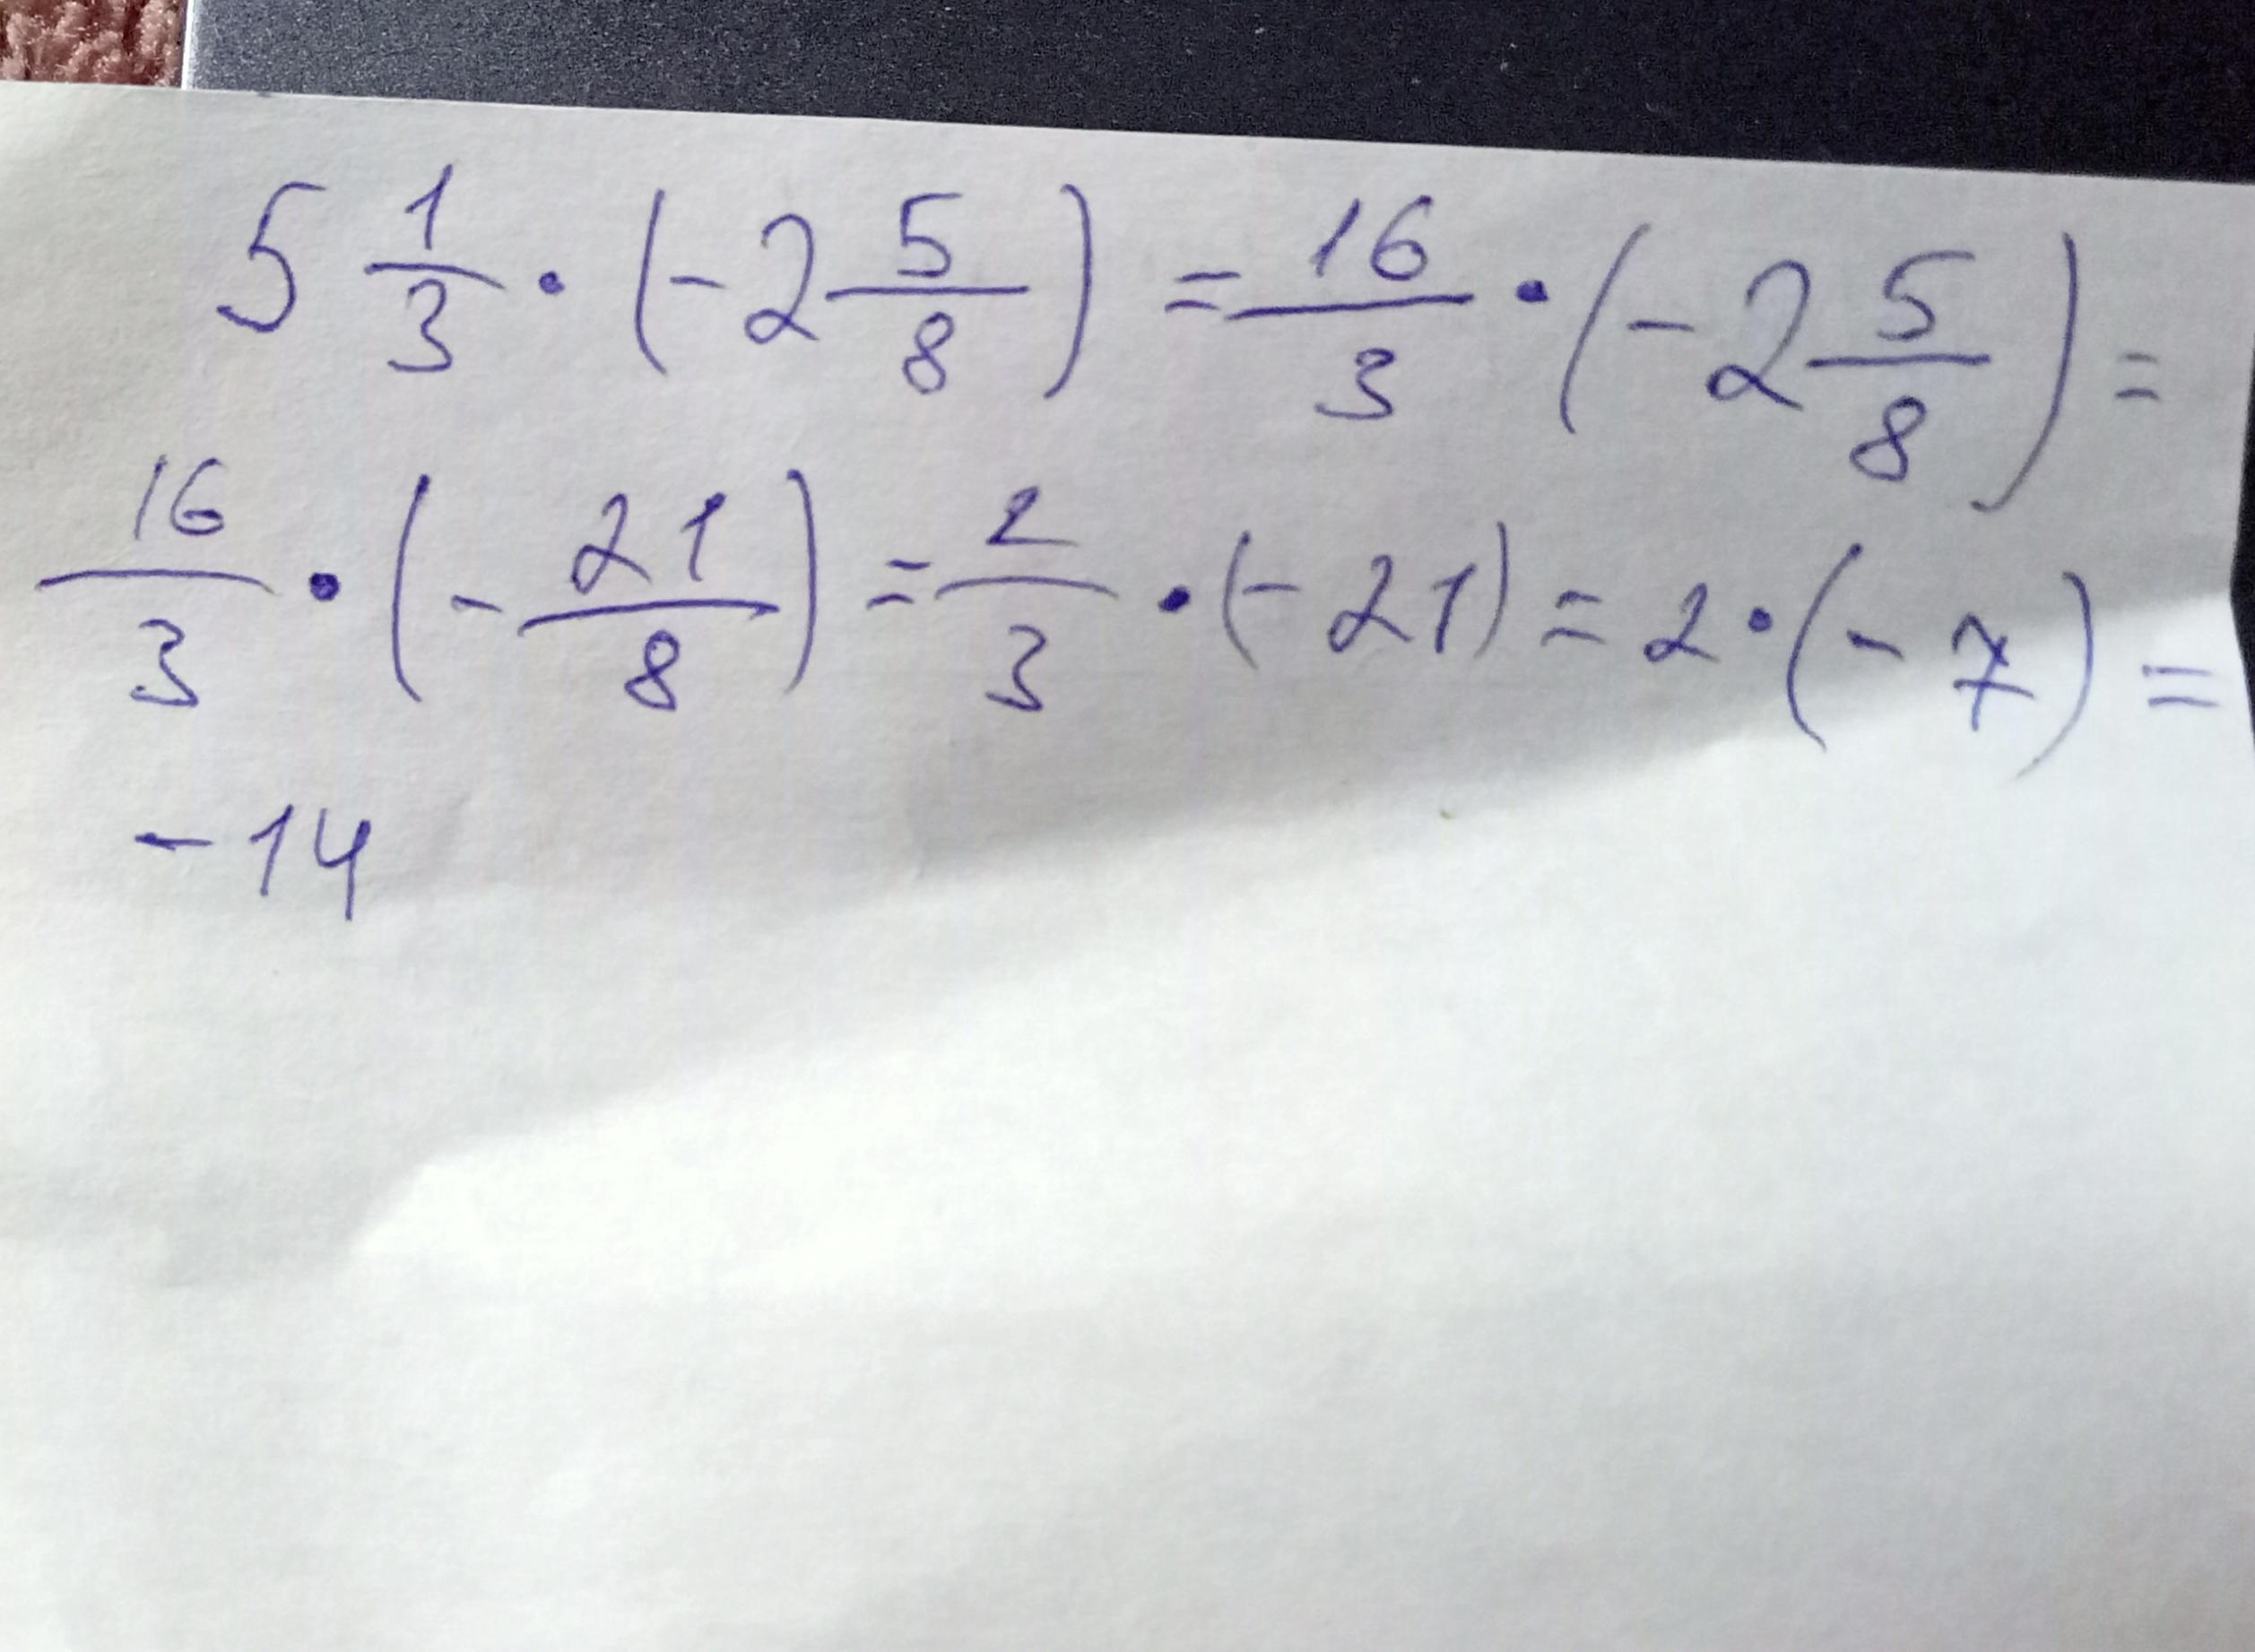 5 1/3 · (-2 5/8) = 16/3 · (-2 5/8) =
16/3 · (- 21/8) = 2/3 · (- 21) = 2 · (- 7) =
- 14